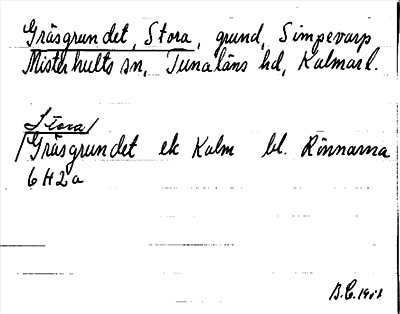 Gräsgrundet, Stora, grund, Simpevarp
Misterhults sn, Tunaläns hd, Kalmar l.
Stora/
/Gräsgrundet ek Kalm bl. Rännarna
6 H 2 a